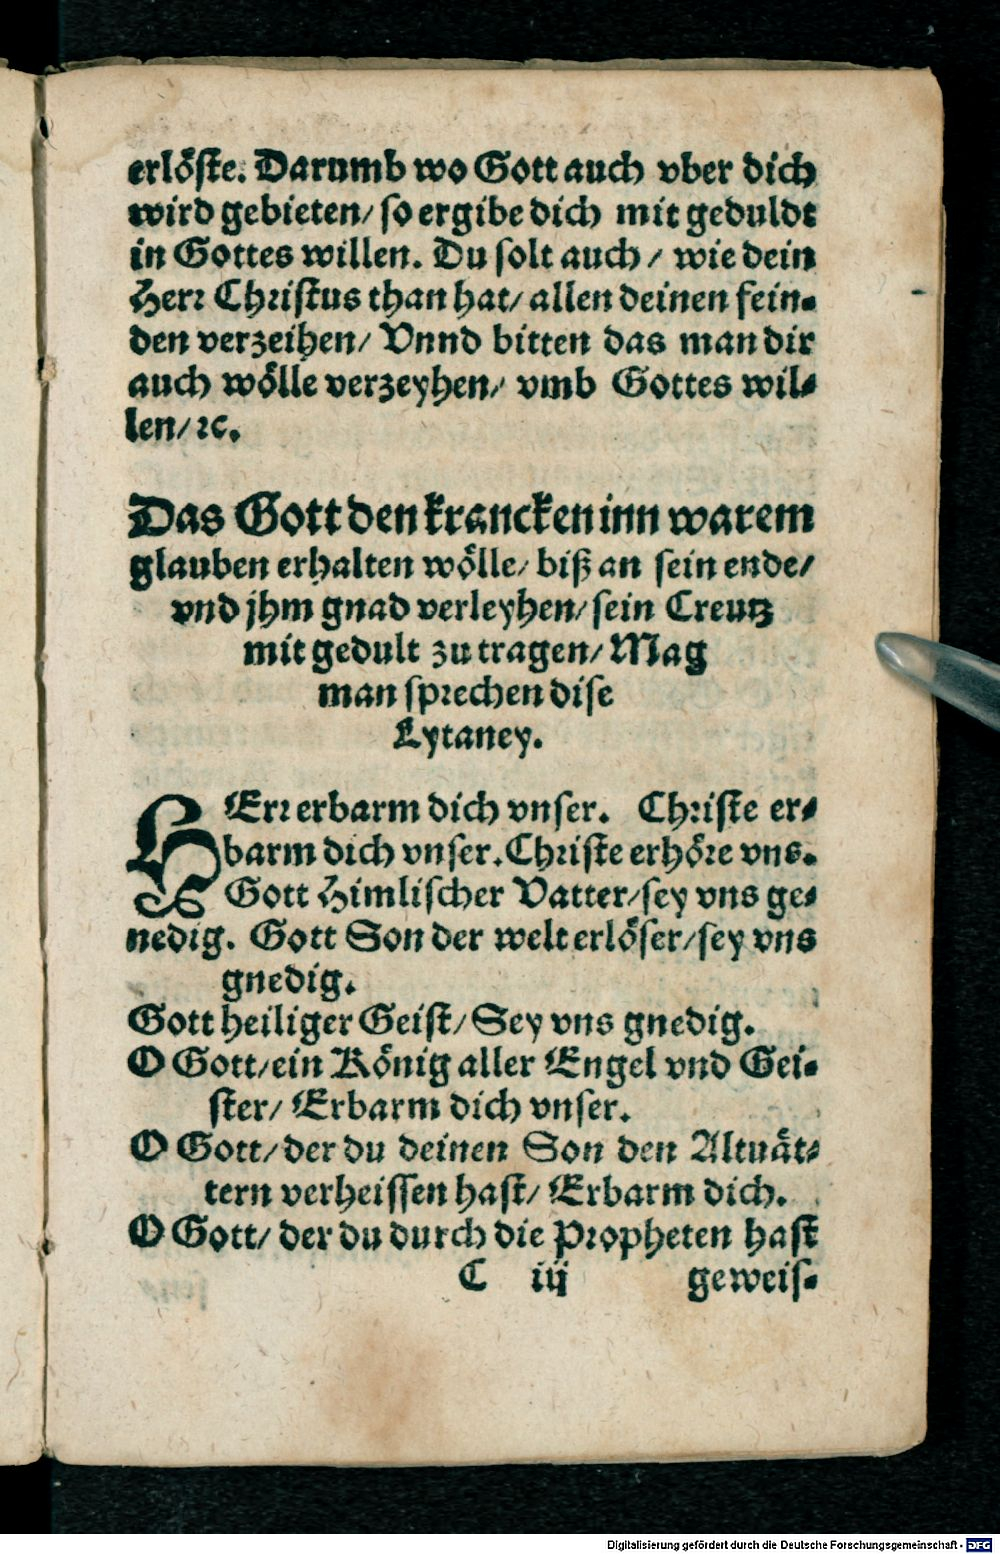 erlöste. Darumb wo Gott auch vber dich
wird gebieten/ so ergibe dich mit geduldt
in Gottes willen. Du solt auch/ wie dein
Herr Christus than hat/ allen deinen fein-
den verzeihen/ Vnnd bitten das man dir
auch wölle verzeyhen/ vmb Gottes wil-
len/ ꝛc.
Das Gott den krancken inn warem
glauben erhalten wölle/ biß an sein ende/
vnd jhm gnad verleyhen/ sein Creutz
mit gedult zu tragen/ Mag
man sprechen dise
Lytaney.
HErr erbarm dich vnser. Christe er-
barm dich vnser. Christe erhöre vns.
Gott Himlischer Vatter/ sey vns ge-
nedig. Gott Son der welt erlöser/ sey vns
gnedig.
Gott heiliger Geist/ Sey vns gnedig.
O Gott/ ein König aller Engel vnd Gei-
ster/ Erbarm dich vnser.
O Gott/ der du deinen Son den Altuät-
tern verheissen hast/ Erbarm dich.
O Gott/ der du durch die Propheten hast
C iij geweis-
Digitalisierung gefördert durch die Deutsche Forschungsgemeinschaft - DFG